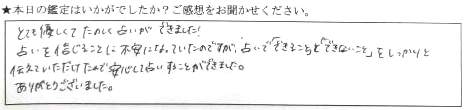 ★本日の鑑定はいかがでしたか？ご感想をお聞かせください。
とても優しくてたのしく占いができました!
占いを信じることに不安になっていたのですが、占いで「できること」と「できないこと」をしっかりと
伝えていただけたので安心して占いすることができました。
ありがとうございました。